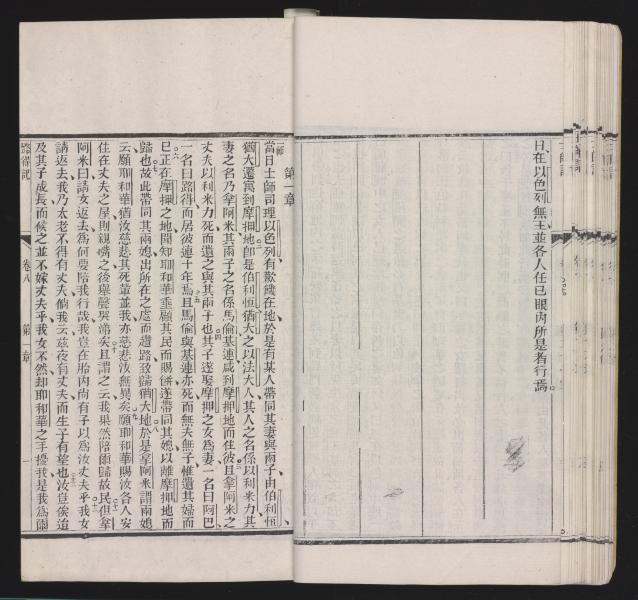 日在以色列無王並各人任已眼内所是者行焉
第一章
當日士師司理以色列有歉饑在地於是有某人帶同其妻與兩子由伯利恒
猶大遷寓到摩押地卽是伯利恒猶大之以法大人其人之名係以利米力其
妻之名乃拿阿米其兩子之名係馬倫基連咸到摩押地而住彼且拿阿米之
丈夫以利米力死而遺之與其兩子也其子遂娶摩押之女為妻一名曰阿巴
一名曰路得而居彼連十年焉且馬倫與基連亦死而無夫無子惟遺其婦而
已正在摩押之地聞知耶和華垂顧其民而賜餅遂帶同其媳以離摩押地而
歸也故此帶同其兩媳出所在之處而遵路致歸猶大地於是拿阿米謂兩媳
云願耶和華猶汝慈悲其死輩並我亦慈悲汝無異矣願耶和華賜汝各人安
住在丈夫之屋則親嘴之後舉聲哭涕矣且謂之云我果然陪爾歸故民但拿
阿米曰請女返去為何要陪我行哉我豈在胎内尚有子以為汝丈夫乎我女
請返去我乃太老不得有丈夫倘我云茲夜有丈夫而生子有望也汝豈俟迨
及其子成長而候之並不嫁丈夫乎我女不然却耶和華之手擾我是我為爾
路得記
卷八
第一章
一